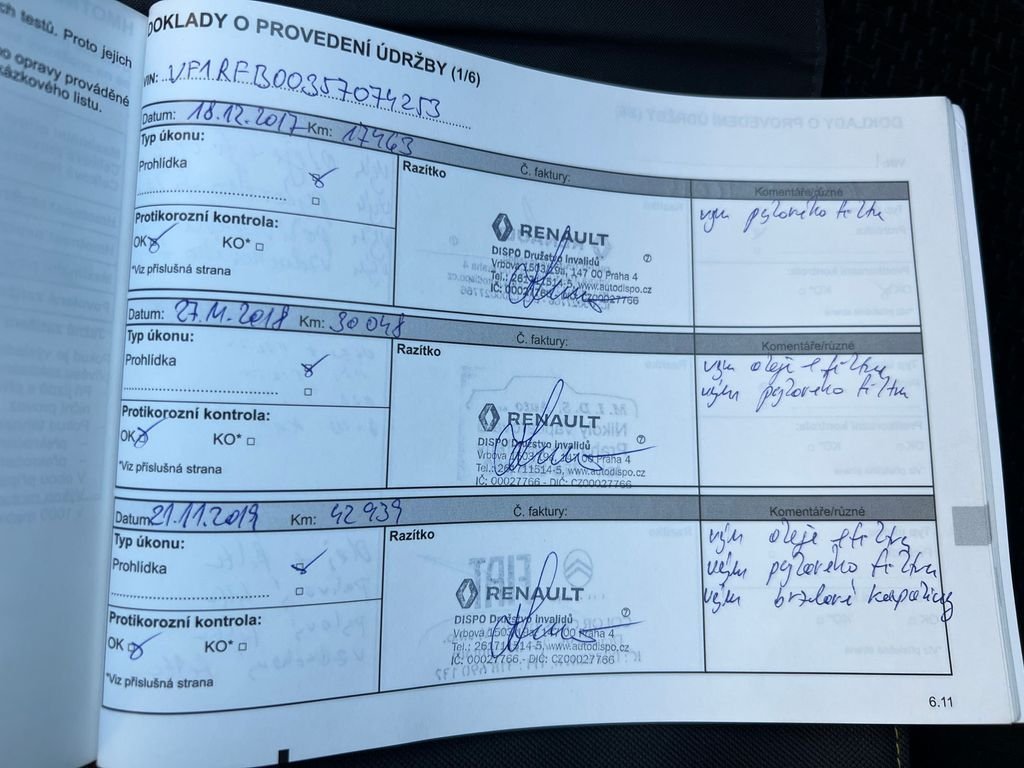 ch testů. Proto jejich
o opravy prováděné
kázkového listu.
DOKLADY O PROVEDENÍ ÚDRŽBY (1/6)
VIN: VF1RFB00357074253
Datum: 18.12.2017 Km: 17463
Č. faktury:
Komentáře/různé
Typ úkonu:
Prohlídka
Razítko
vým pylového filtru
Protikorozní kontrola:
OK KO*
*Viz příslušná strana
RENAULT
DISPO Družstvo Invalidů
Vrbova 1503/19a, 147 00 Praha 4
Tel.: 261711514-5, www.autodispo.cz
IČ: 00027766 - DIČ: CZ00027766
Datum: 27.11.2018 Km: 30048
Č. faktury:
Komentáře/různé
Typ úkonu:
Prohlídka
Razítko
vým oleje + filtru
vým pylového filtru
Protikorozní kontrola:
OK KO*
*Viz příslušná strana
RENAULT
DISPO Družstvo Invalidů
Vrbova 1503/19a, 147 00 Praha 4
Tel.: 261711514-5, www.autodispo.cz
IČ: 00027766 - DIČ: CZ00027766
Datum: 21.11.2019 Km: 42939
Č. faktury:
Komentáře/různé
Typ úkonu:
Prohlídka
Razítko
vým oleje + filtru
vým pylového filtru
vým brzdové kapaliny
Protikorozní kontrola:
OK KO*
*Viz příslušná strana
RENAULT
DISPO Družstvo Invalidů
Vrbova 1503/19a, 147 00 Praha 4
Tel.: 261711514-5, www.autodispo.cz
IČ: 00027766 - DIČ: CZ00027766
6.11